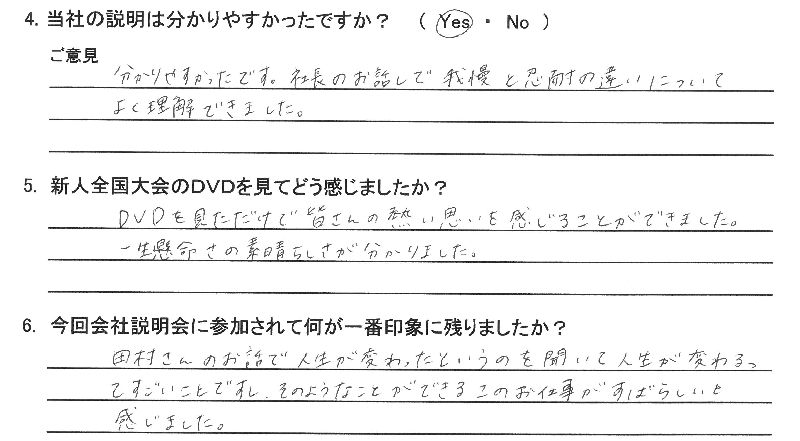 4. 当社の説明は分かりやすかったですか? ( Yes ・ No )
ご意見
分かりやすかったです。社長のお話しで我慢と忍耐の違いについて
よく理解できました。
5. 新人全国大会のDVDを見てどう感じましたか?
DVDを見ただけで皆さんの熱い思いを感じることができました。
一生懸命さの素晴らしさが分かりました。
6. 今回会社説明会に参加されて何が一番印象に残りましたか?
田村さんのお話で人生が変わったというのを聞いて人生が変わるっ
てすごいことですし、そのようなことができるこのお仕事がすばらしいと
感じました。